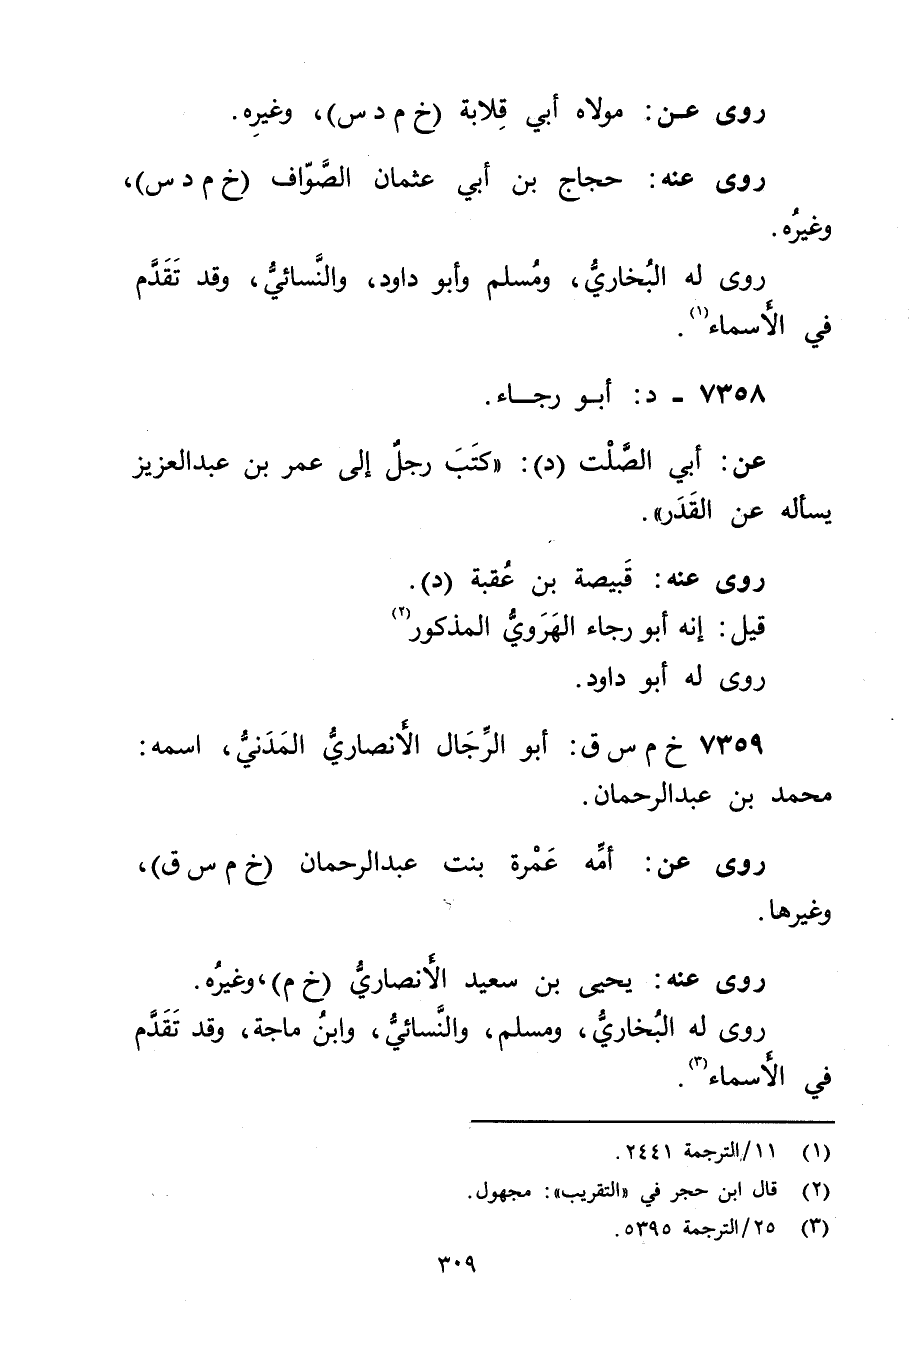 روى عـن: مولاه أبي قِلابة (خ م د س)، وغيرِه.
روى عنه: حجاج بن أبي عثمان الصَّوّاف (خ م د س)،
وغيرُه.
روى له البُخاريُّ، ومُسلم وأبو داود، والنَّسائيُّ، وقد تَقَدَّم
في الأَسماء(١).
٧٣٥٨ - د: أبـو رجـــاء.
عن: أبي الصَّلْت (د): «كتَبَ رجلٌ إلى عمر بن عبدالعزيز
يسأله عن القَدَر».
روى عنه: قَبيصة بن عُقبة (د).
قيل: إنه أبو رجاء الهَرَويُّ المذكور(٢)
روى له أبو داود.
٧٣٥٩ خ م س ق: أبو الرِّجَال الأَنصاريُّ المَدَنيُّ، اسمه:
محمد بن عبدالرحمان.
روى عن: أمِّه عَمْرة بنت عبدالرحمان (خ م س ق)،
وغيرها.
روى عنه: يحيى بن سعيد الأَنصاريُّ (خ م)،وغيرُه.
روى له البُخاريُّ، ومسلم، والنَّسائيُّ، وابنُ ماجة، وقد تَقَدَّم
في الأَسماء(٣).
(١) ١١/الترجمة ٢٤٤١.
(٢) قال ابن حجر في «التقريب»: مجهول.
(٣) ٢٥/الترجمة ٥٣٩٥.
٣٠٩